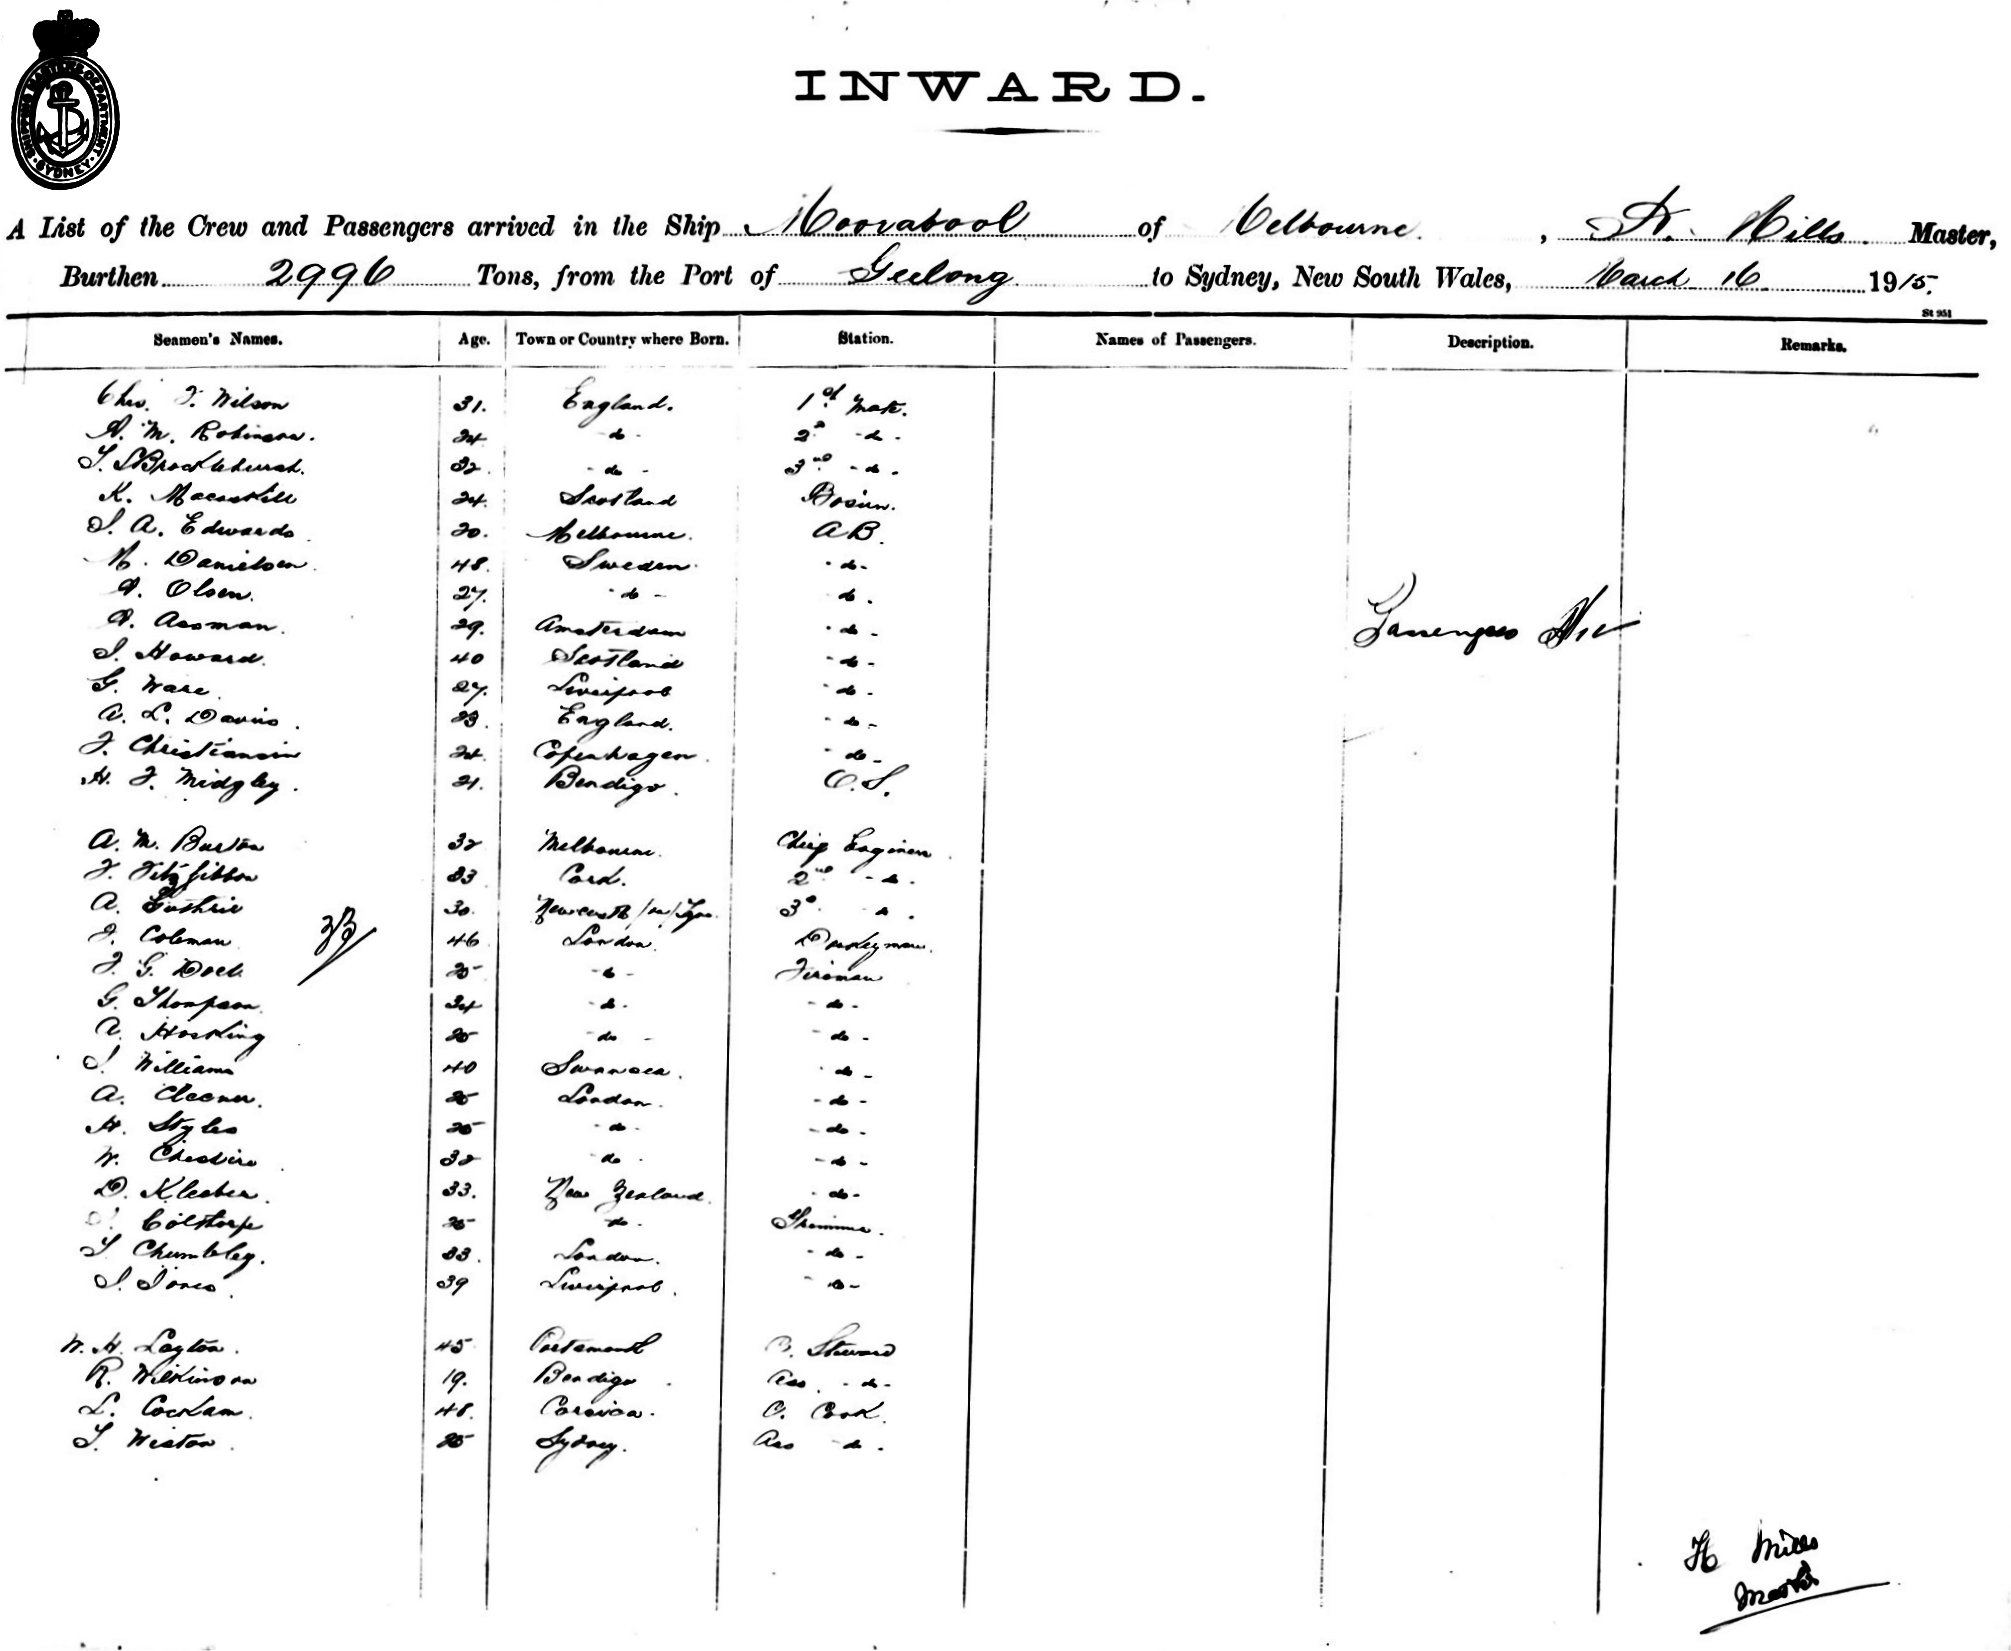 SHIPPING MASTER'S DEPARTMENT · SYDNEY ·
INWARD.
A List of the Crew and Passengers arrived in the Ship Moorabool of Melbourne, H. Mills Master,
Burthen 2996 Tons, from the Port of Geelong to Sydney, New South Wales, March 16 1915.
St 951
Seamen's Names. Age. Town or Country where Born. Station. Names of Passengers. Description. Remarks.
Chas. F. Wilson 31. England. 1st Mate.
A. M. Robinson. 24 - do - 2nd - do -
T. Brocklehurst. 32. - do - 3rd - do -
K. Macaskill 24. Scotland Bosun.
J. A. Edwards 20. Melbourne. AB.
N. Danielsen 48. Sweden. - do -
A. Olsen. 27. - do - do.
A. Assman. 29. Amsterdam - do -
Passengers Nil
J. Howard. 40 Scotland - do -
G. Ware. 27. Liverpool - do -
A. L. Davis. 23. England. - do -
F. Christiansin 24. Copenhagen. - do -
H. F. Midgley. 21. Bendigo. O.S.
A. M. Burton 32 Melbourne. Chief Engineer.
F. Fitzgibbon 33 Cork. 2nd - do -
A. Guthrie 30. Newcastle/on/Tyne. 3rd do.
33
F. Coleman 46 London. Donkeyman.
F. G. Dock 25 - do - Fireman
G. Thompson. 34 - do - - do -
A. Hosking 25 - do - - do -
J. Williams 40 Swansea. - do -
A. 25 London. - do -
H. Styles 25 - do - - do -
W. Cheshire 32 - do - - do -
D. Kleeber. 33. New Zealand. - do -
Colthorpe 25 - do - Trimmer.
T. Chumbley. 33. London. - do -
J. Jones. 39 Liverpool. - do -
W. H. Layton. 45 Portsmouth C. Steward
R. Wilkinson 19. Bendigo. Ass. - do -
L. Cockam. 48. Corsica. C. Cook.
T. Weston. 25 Sydney. Ass - do.
H Mills
Master